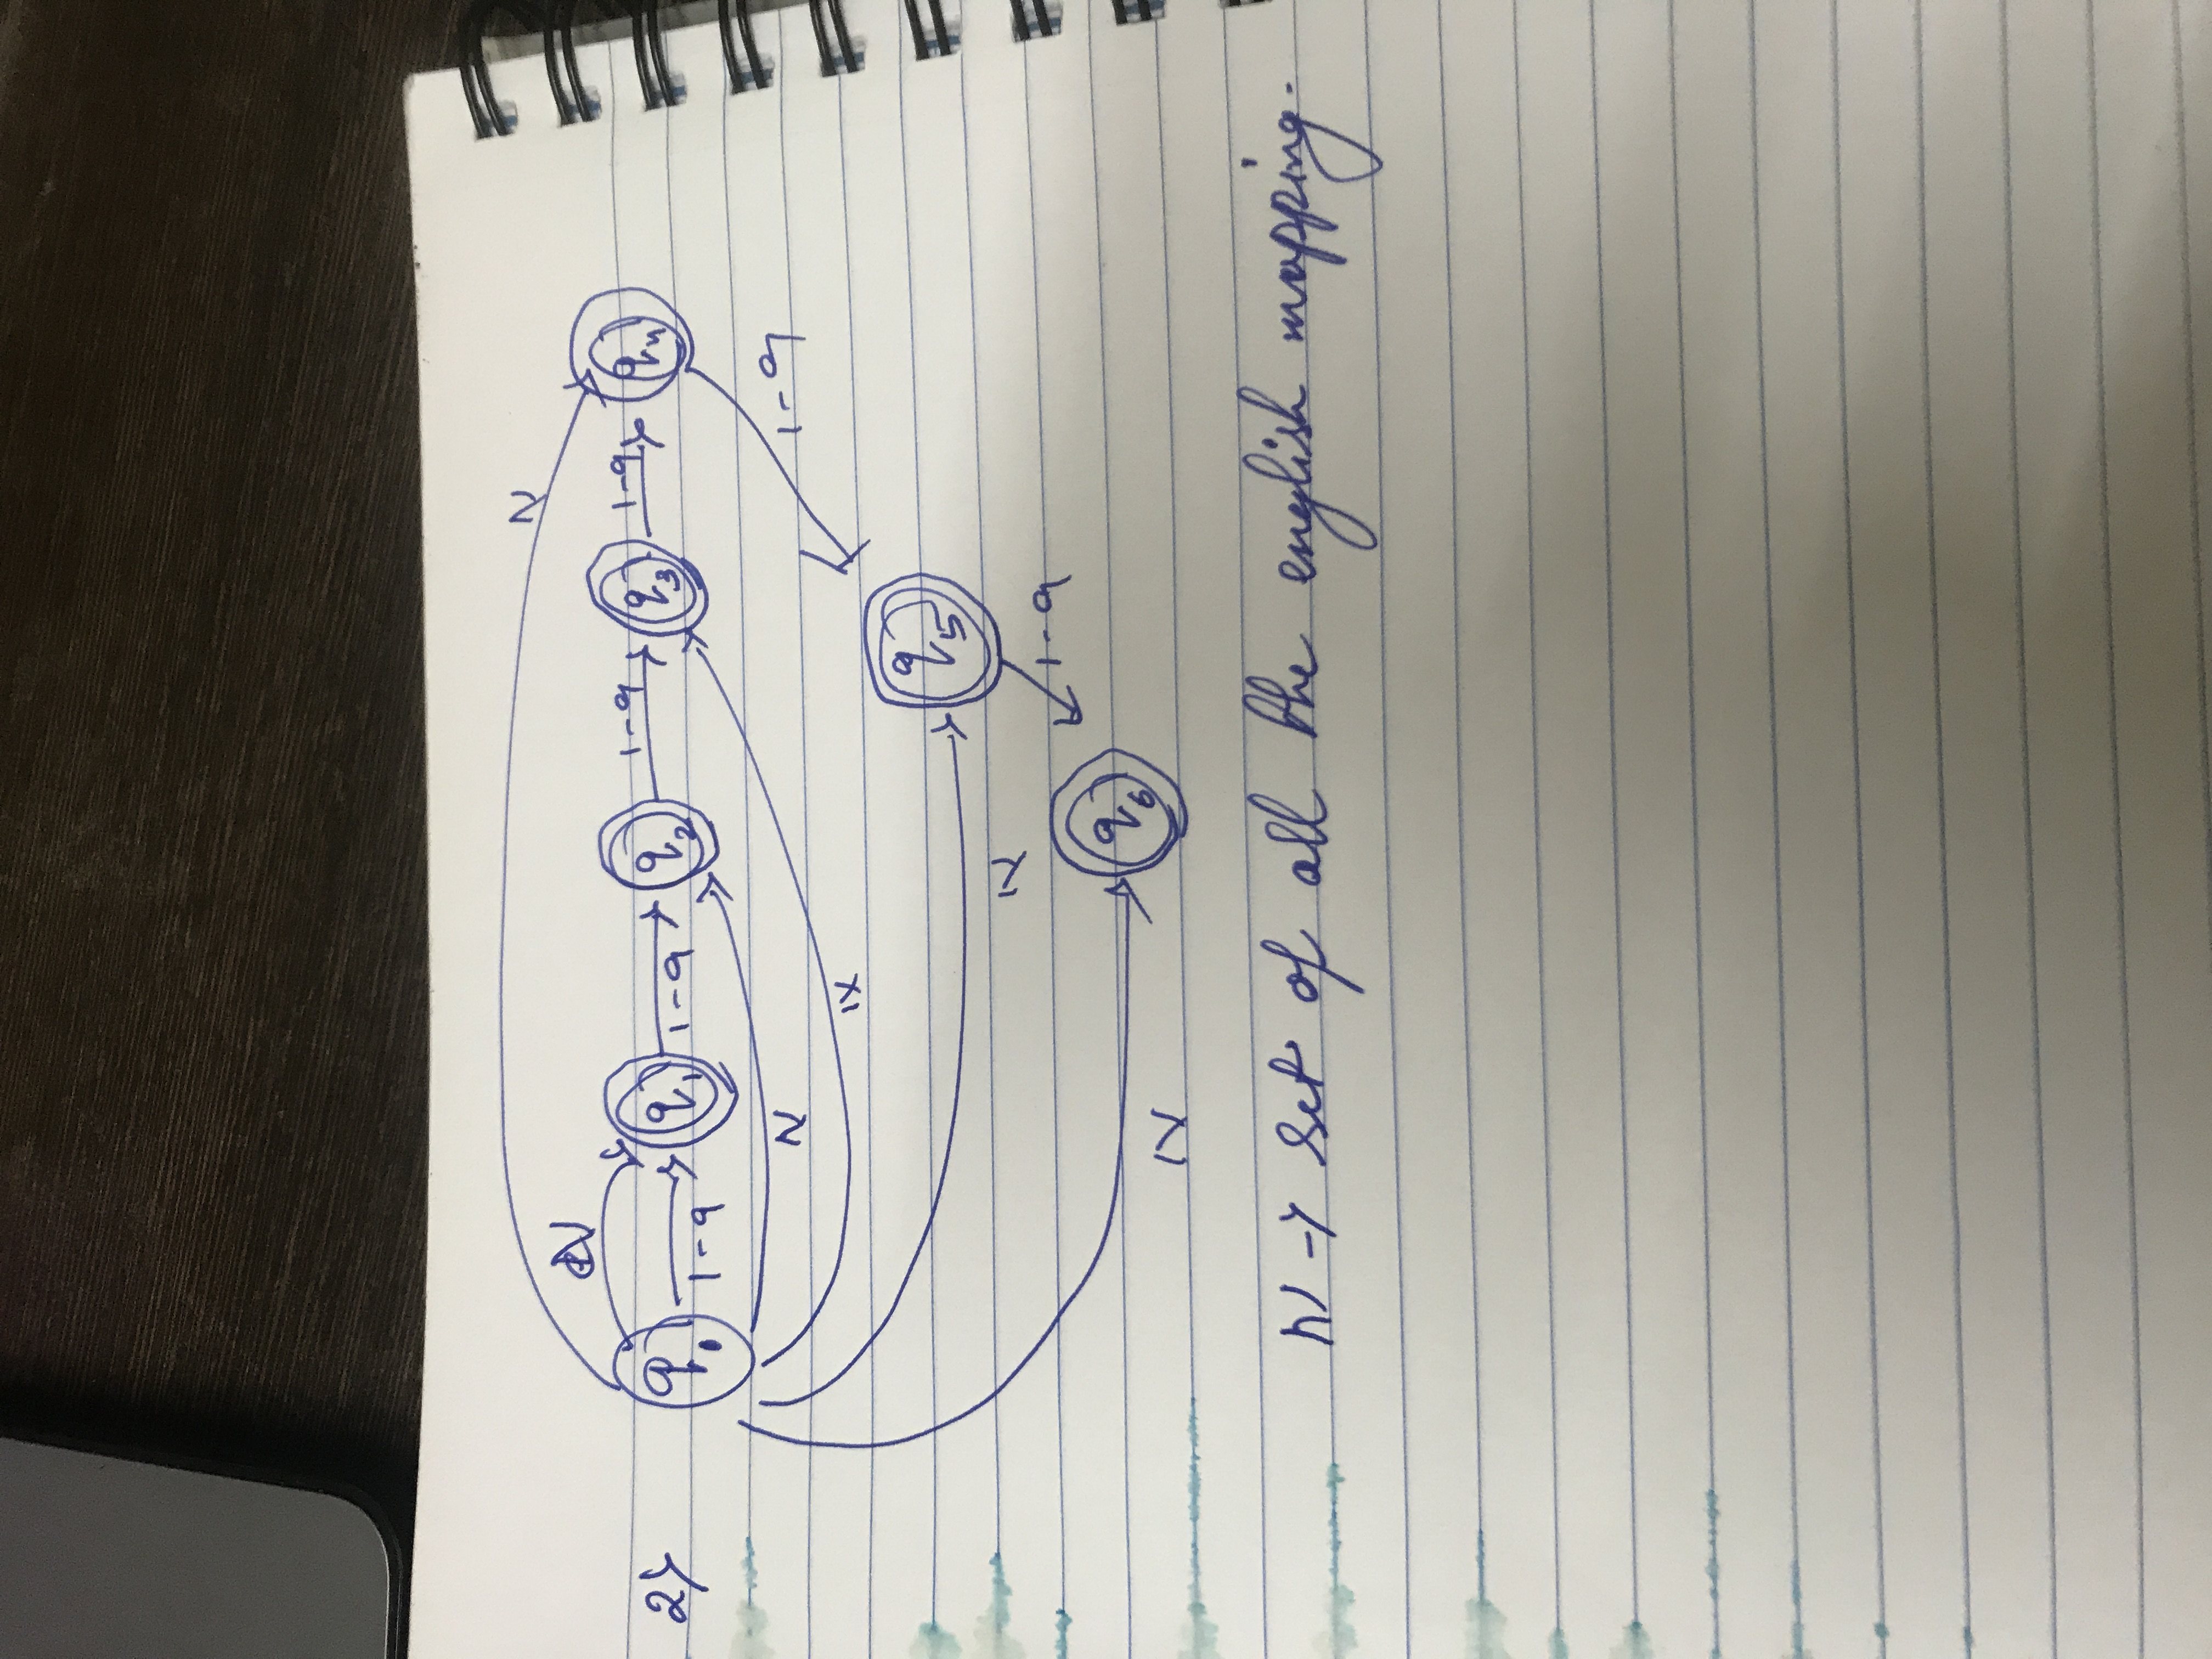 N
N
2) q0 1-9 q1 1-9 q2 1-9 q3 1-9 q4
N
N
1-9
q5
N
1-9
q6
N
N → set of all the english mapping.